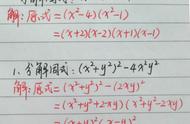 解:原式=(x²-4)(x²-1)
=(x+2)(x-2)(x+1)(x-1)
1、分解因式:(x²+y²)²-4x²y²
解:原式=(x²+y²)²-(2xy)²
=(x²+y²+2xy)(x²+y²-2xy)
=(x+y)²(x-y)²